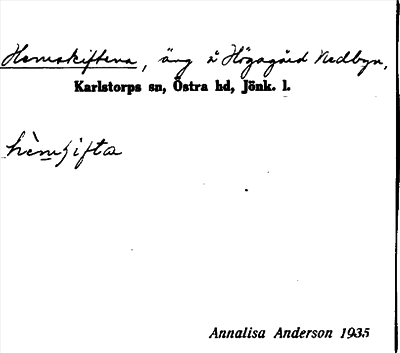 Hemskiftena, äng å Högagärd Nedbyn,
Karlstorps sn, Östra hd, Jönk. l.
hèmʃifta
Annalisa Anderson 1935